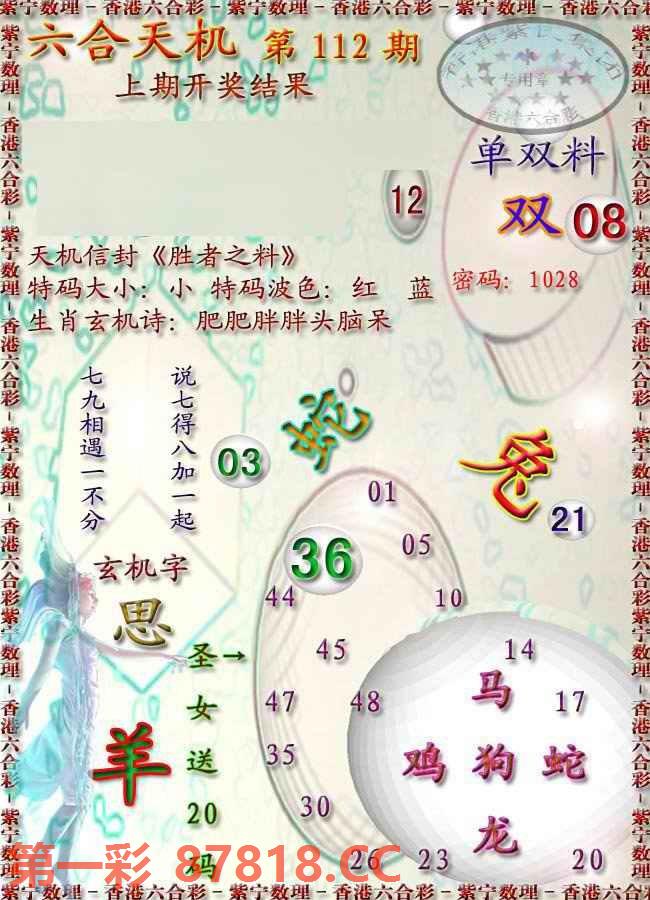 紫宁数理－香港六合彩－紫宁数理－香港六合彩－紫宁数理－香港六合彩
六合天机 第 112 期
上期开奖结果
专用章
香港六合彩
单双料
12
双 08
天机信封《胜者之料》
特码大小：小 特码波色：红 蓝
密码：1028
生肖玄机诗：肥肥胖胖头脑呆
说七得八加一起
七九相遇一不分
蛇
03
兔
21
01
05
36
44
10
玄机字
思
圣女送20码
→
45
14
马
47
48
17
羊
35
鸡 狗 蛇
30
龙
26
23
20
第一彩 87818.CC
紫宁数理－香港六合彩－紫宁数理－香港六合彩－紫宁数理